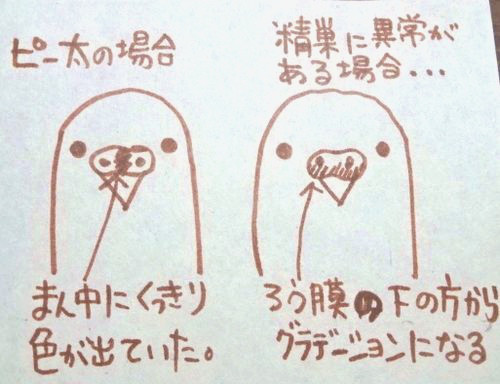 ピー太の場合
精巣に異常が
ある場合...
まん中にくっきり
色が出ていた。
ろう膜の下の方から
グラデーションになる